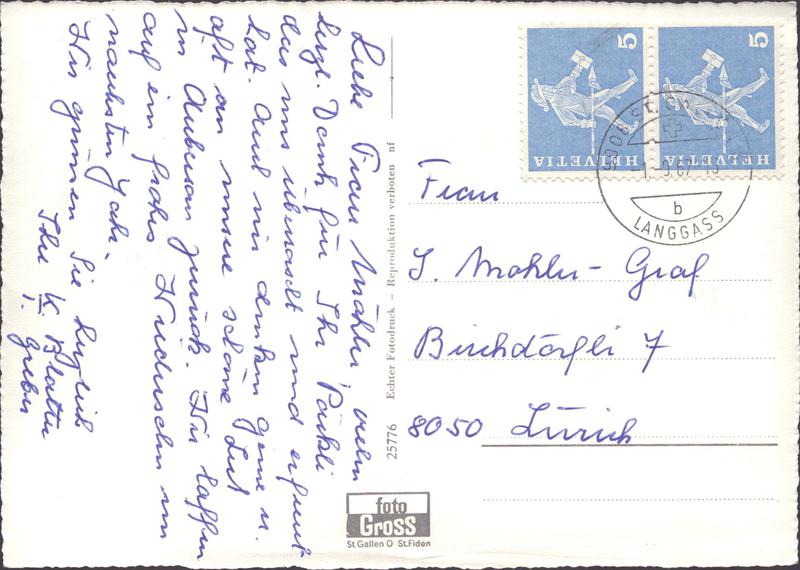 Liebe Frau Mohler, vielen
herzl. Dank für Ihr Päckli
das uns überrascht und erfreut
hat. Auch wir denken gerne u.
oft an unsere schöne Zeit
in zurück. Wir hoffen
auf ein frohes Wiedersehn im
nächsten Jahr.
Wir grüssen Sie herzlich
Ihre K. Blatter
Greber
25776 Echter Fotodruck – Reproduktion verboten nf
foto
Gross
St.Gallen O St.Fiden
5
HELVETIA
5
HELVETIA
9008 ST.
b
LANGGASS
Frau
J. Mohler-Graf
Birchdörfli 7
8050 Zürich